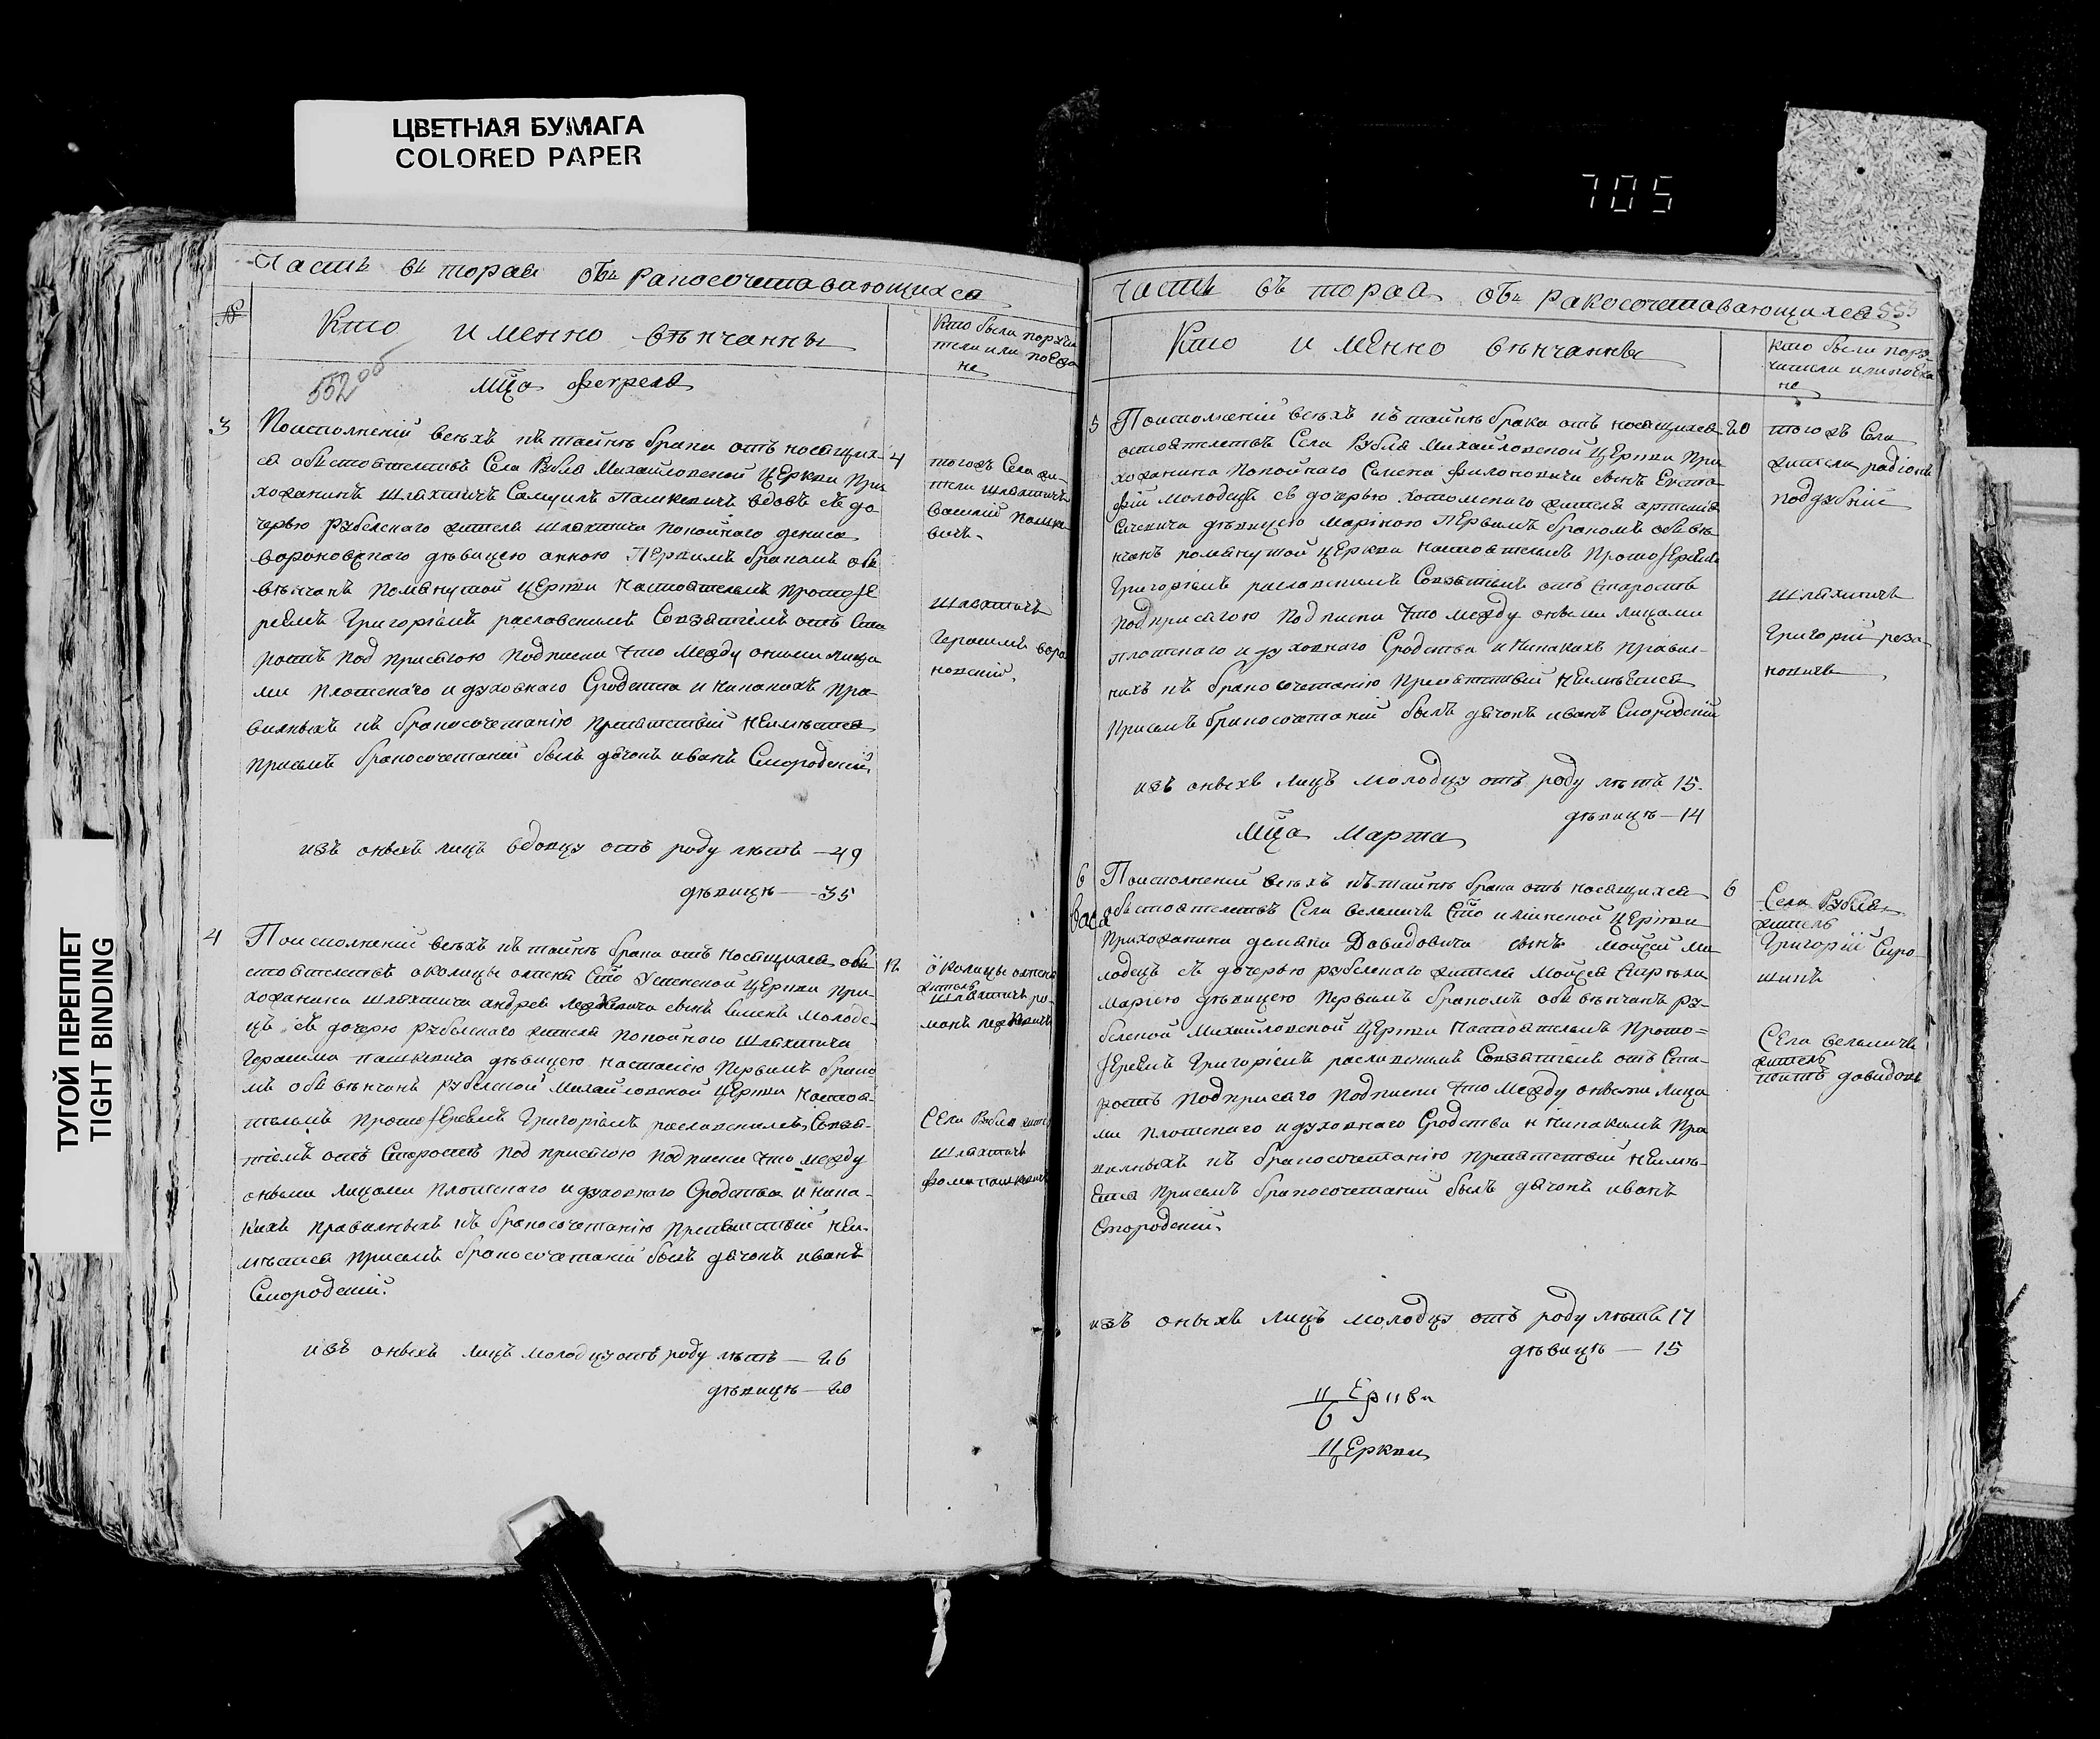 ЦВЕТНАЯ БУМАГА
COLORED PAPER
705
ТУГОЙ ПЕРЕПЛЕТ
TIGHT BINDING
Часть въ торая объ ракосочетавающихся
№
Кто именно вѣнчанны
Кто были поручи
тели или поѣзжа
не
552
мца февреля
3
Поисполненіи всѣхъ къ тайнѣ брака относящих-
ся обьстоятельствъ Села Рубля Михайловской Церкви При
хожанинъ шляхтичъ Самуилъ Пашкевичъ вдовъ съ до-
черью рубелскаго жителя шляхтича покойнаго дениса
вороновскаго дѣвицею анною Первымъ бракомъ объ
вѣнчанъ Помянутой Церкви Настоятелемъ Протоіе
реемъ Григоріемъ раславскимъ Совзятіемъ отъ Ста
ростъ под присягою подписки что между оными лица
ми плотскаго и духовнаго Сродства и никакихъ пра-
вилныхъ къ бракосочетанію препятствій неимѣится
присемъ бракосочетаніи былъ дячокъ иванъ Смородскій
4
тогожъ Села жи
тели шляхтичъ
василій пашке
вичъ
шляхтичъ
Герасимъ воро
новскій
изъ оныхъ лицъ вдовцу отъ роду лѣтъ — 49
дѣвицѣ — 35
4
Поисполненіи всѣхъ къ тайнѣ брака относящихся обь
стоятельствъ околицы олпена Сто Успенской Церкви при-
хожанина шляхтича андрея сынъ молоде-
цъ съ дочерю рубелскаго жителя покойнаго шляхтича
Герасима пашкевича дѣвицею настасіею Первымъ брако
мъ объ вѣнчанъ рубелской Михайловской Церкви настоя-
телемъ Протоіереемъ Григоріемъ раславскимъ Совзя-
тіемъ отъ Старостъ под присягою подписки что между
оными лицами плотскаго и духовнаго Сродства и ника-
кихъ правилныхъ къ бракосочетанію препятствій неи-
мѣится присемъ бракосочетаніи былъ дячокъ иванъ
Смородскій.
12
околицы олпена
житель
шляхтичъ ро-
манъ
Села Рубля жите
шляхтичъ
фома пашкевичъ
изъ оныхъ лицъ молодцу отъ роду лѣтъ — 26
дѣвицѣ — 20
Часть въ торая объ ракосочетавающихся 553
Кто именно вѣнчанны
кто были пору-
чители или поѣзжа
не
5
Поисполненіи всѣхъ къ тайнѣ брака относящихся
стоятельствъ Села Рубля Михайловской Церкви при
хожанина покойнаго Семена филоновича сынъ Евста-
фій молодецъ съ дочерью хотомскаго жителя артема
дѣвицею маріною Первымъ бракомъ объ вѣ
нчанъ помянутой Церкви настоятелемъ Протоіереемъ
Григоріемъ раславскимъ Совзятіемъ отъ Старостъ
под присягою подписки что между оными лицами
плотскаго и духовнаго Сродства и никакихъ правил-
нихъ къ бракосочетанію препятствій неимѣится
присемъ бракосочетаніи былъ дячокъ иванъ Смородскій
20
тогожъ Села
жители радіонъ
поддубній
шляхтичъ
Григорій
изъ оныхъ лицъ молодцу отъ роду лѣтъ 15.
дѣвицѣ — 14
мца марта
6
Поисполненіи всѣхъ къ тайнѣ брака относящихся
обьстоятельствъ Села велемичъ Сто илинской Церкви
Прихожанина демяна Давидовича сынъ мойсей мо
лодецъ съ дочерью рубелскаго жителя мойсея
маріею дѣвицею первымъ бракомъ объ вѣнчанъ ру-
белской Михайловской Церкви настоятелемъ Прото-
іереемъ Григоріемъ раславскимъ Совзятіемъ отъ Ста-
ростъ под присяго подписки что между оными лица
ми плотскаго и духовнаго Сродства и никакихъ пра
вилныхъ къ бракосочетанію препятствій неимѣ-
ится присемъ бракосочетаніи былъ дячокъ иванъ
Смородскій.
6
Села Рубля
житель
Григорій Сиро-
шикъ
Села велемичъ
житель
давидовъ
изъ оныхъ лицъ молодцу отъ роду лѣтъ 17
дѣвицѣ — 15
Церкви